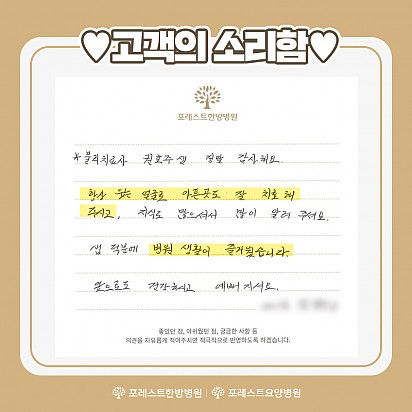 ♥고객의 소리함♥
포레스트한방병원
*물리치료사 권호주 쌤 정말 감사해요.
항상 웃는 얼굴로 아픈곳도 잘 치료해
주시고, 지식도 많으셔서 많이 알려 주셔요.
쌤 덕분에 병원 생활이 즐거웠습니다.
앞으로도 건강하시고 예뻐지셔요.
좋았던 점, 아쉬웠던 점, 궁금한 사항 등
의견을 자유롭게 적어주시면 적극적으로 반영하도록 하겠습니다.
포레스트한방병원 | 포레스트요양병원